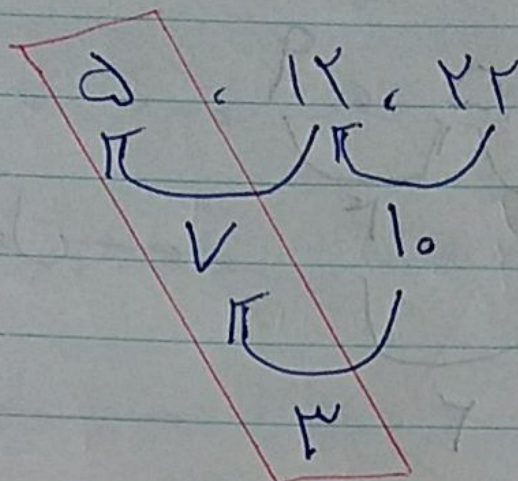 ۵ ، ۱۲ ، ۲۲
۷ ۱۰
۳